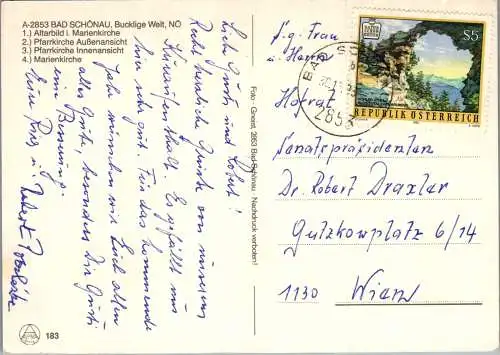 A-2853 BAD SCHÖNAU, Bucklige Welt, NÖ
1.) Altarbild i. Marienkirche
2.) Pfarrkirche Außenansicht
3.) Pfarrkirche Innenansicht
4.) Marienkirche
Liebe Gusti und Robert!
Recht herzliche Grüße von unserem
Kuraufenthalt. Es gefällt uns
hier sehr gut. Für das kommende
Jahr wünschen wir Euch allen
alles Gute, besonders Dir Gusti
eine Besserung.
Eure
183
Foto - Gneist, 2853 Bad Schönau - Nachdruck verboten!
BAD
2853
S5
REPUBLIK ÖSTERREICH
S.g. Frau
u. Herrn
Hofrat
Senatspräsidenten
Dr. Robert Draxler
Gutzkowplatz 6/14
1130 Wien